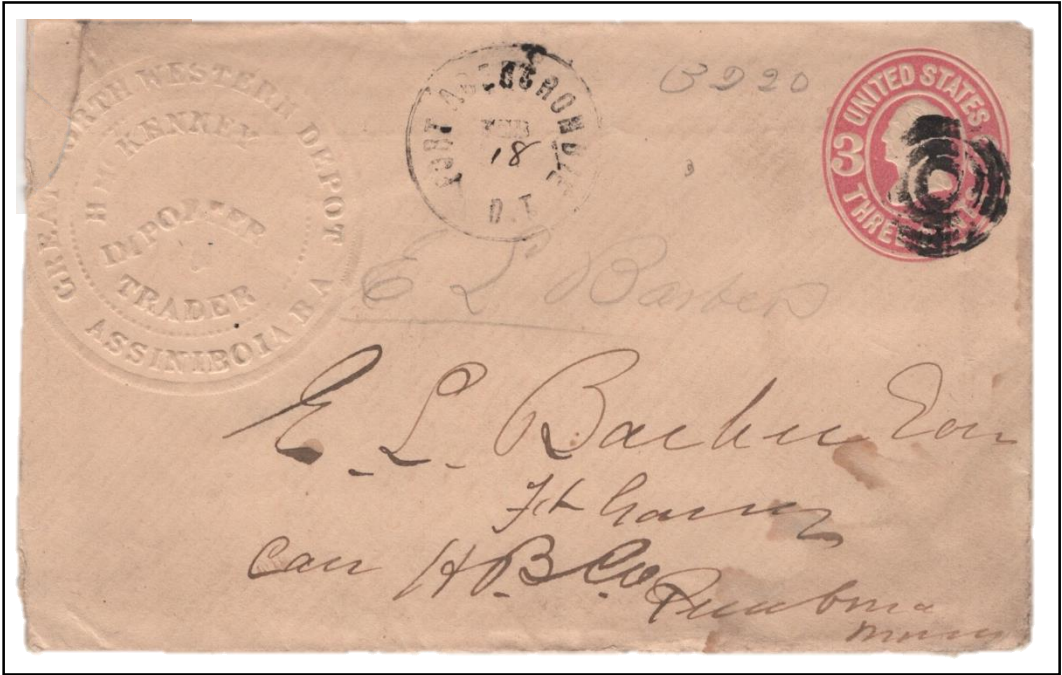 GREAT NORTH WESTERN DEPOT
H. McKENNEY
IMPORTER
&
TRADER
ASSINIBOIA B A
FORT ABERCROMBIE
18
D.T.
B D 20
UNITED STATES
3
THREE CENTS
E L Barber
E. L. Barber Esqr
Ft Garry
Care H.B.Co
Pembina
Minn